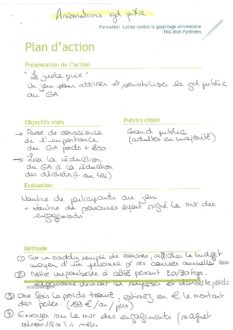 Animations gd public
Formation - Lutter contre le gaspillage alimentaire
Plan d'action
Présentation de l'action
"Le juste prix"
Un jeu pour attirer et sensibiliser le gd public
au GA
Objectifs visés
Publics ciblés
→ Prise de conscience
de l'importance
du GA poids +
Grand public
(adultes en majorité)
→ Lier la réduction
du GA à la réduction
des déchets
Evaluation
Nombre de participants au jeu
+ nombre de personnes ayant signé le mur des
engagements
Méthode
① Sur un caddy rempli de courses, afficher le budget
moyen d'une personne ses courses annuelles
② Mettre une poubelle à côté pesant 20/30 kgs.
le poids
③ Une fois le poids trouvé, estimer en € le montant
des pertes (/an/pers)
④ Envoyer sur le mur des engagements (magnet